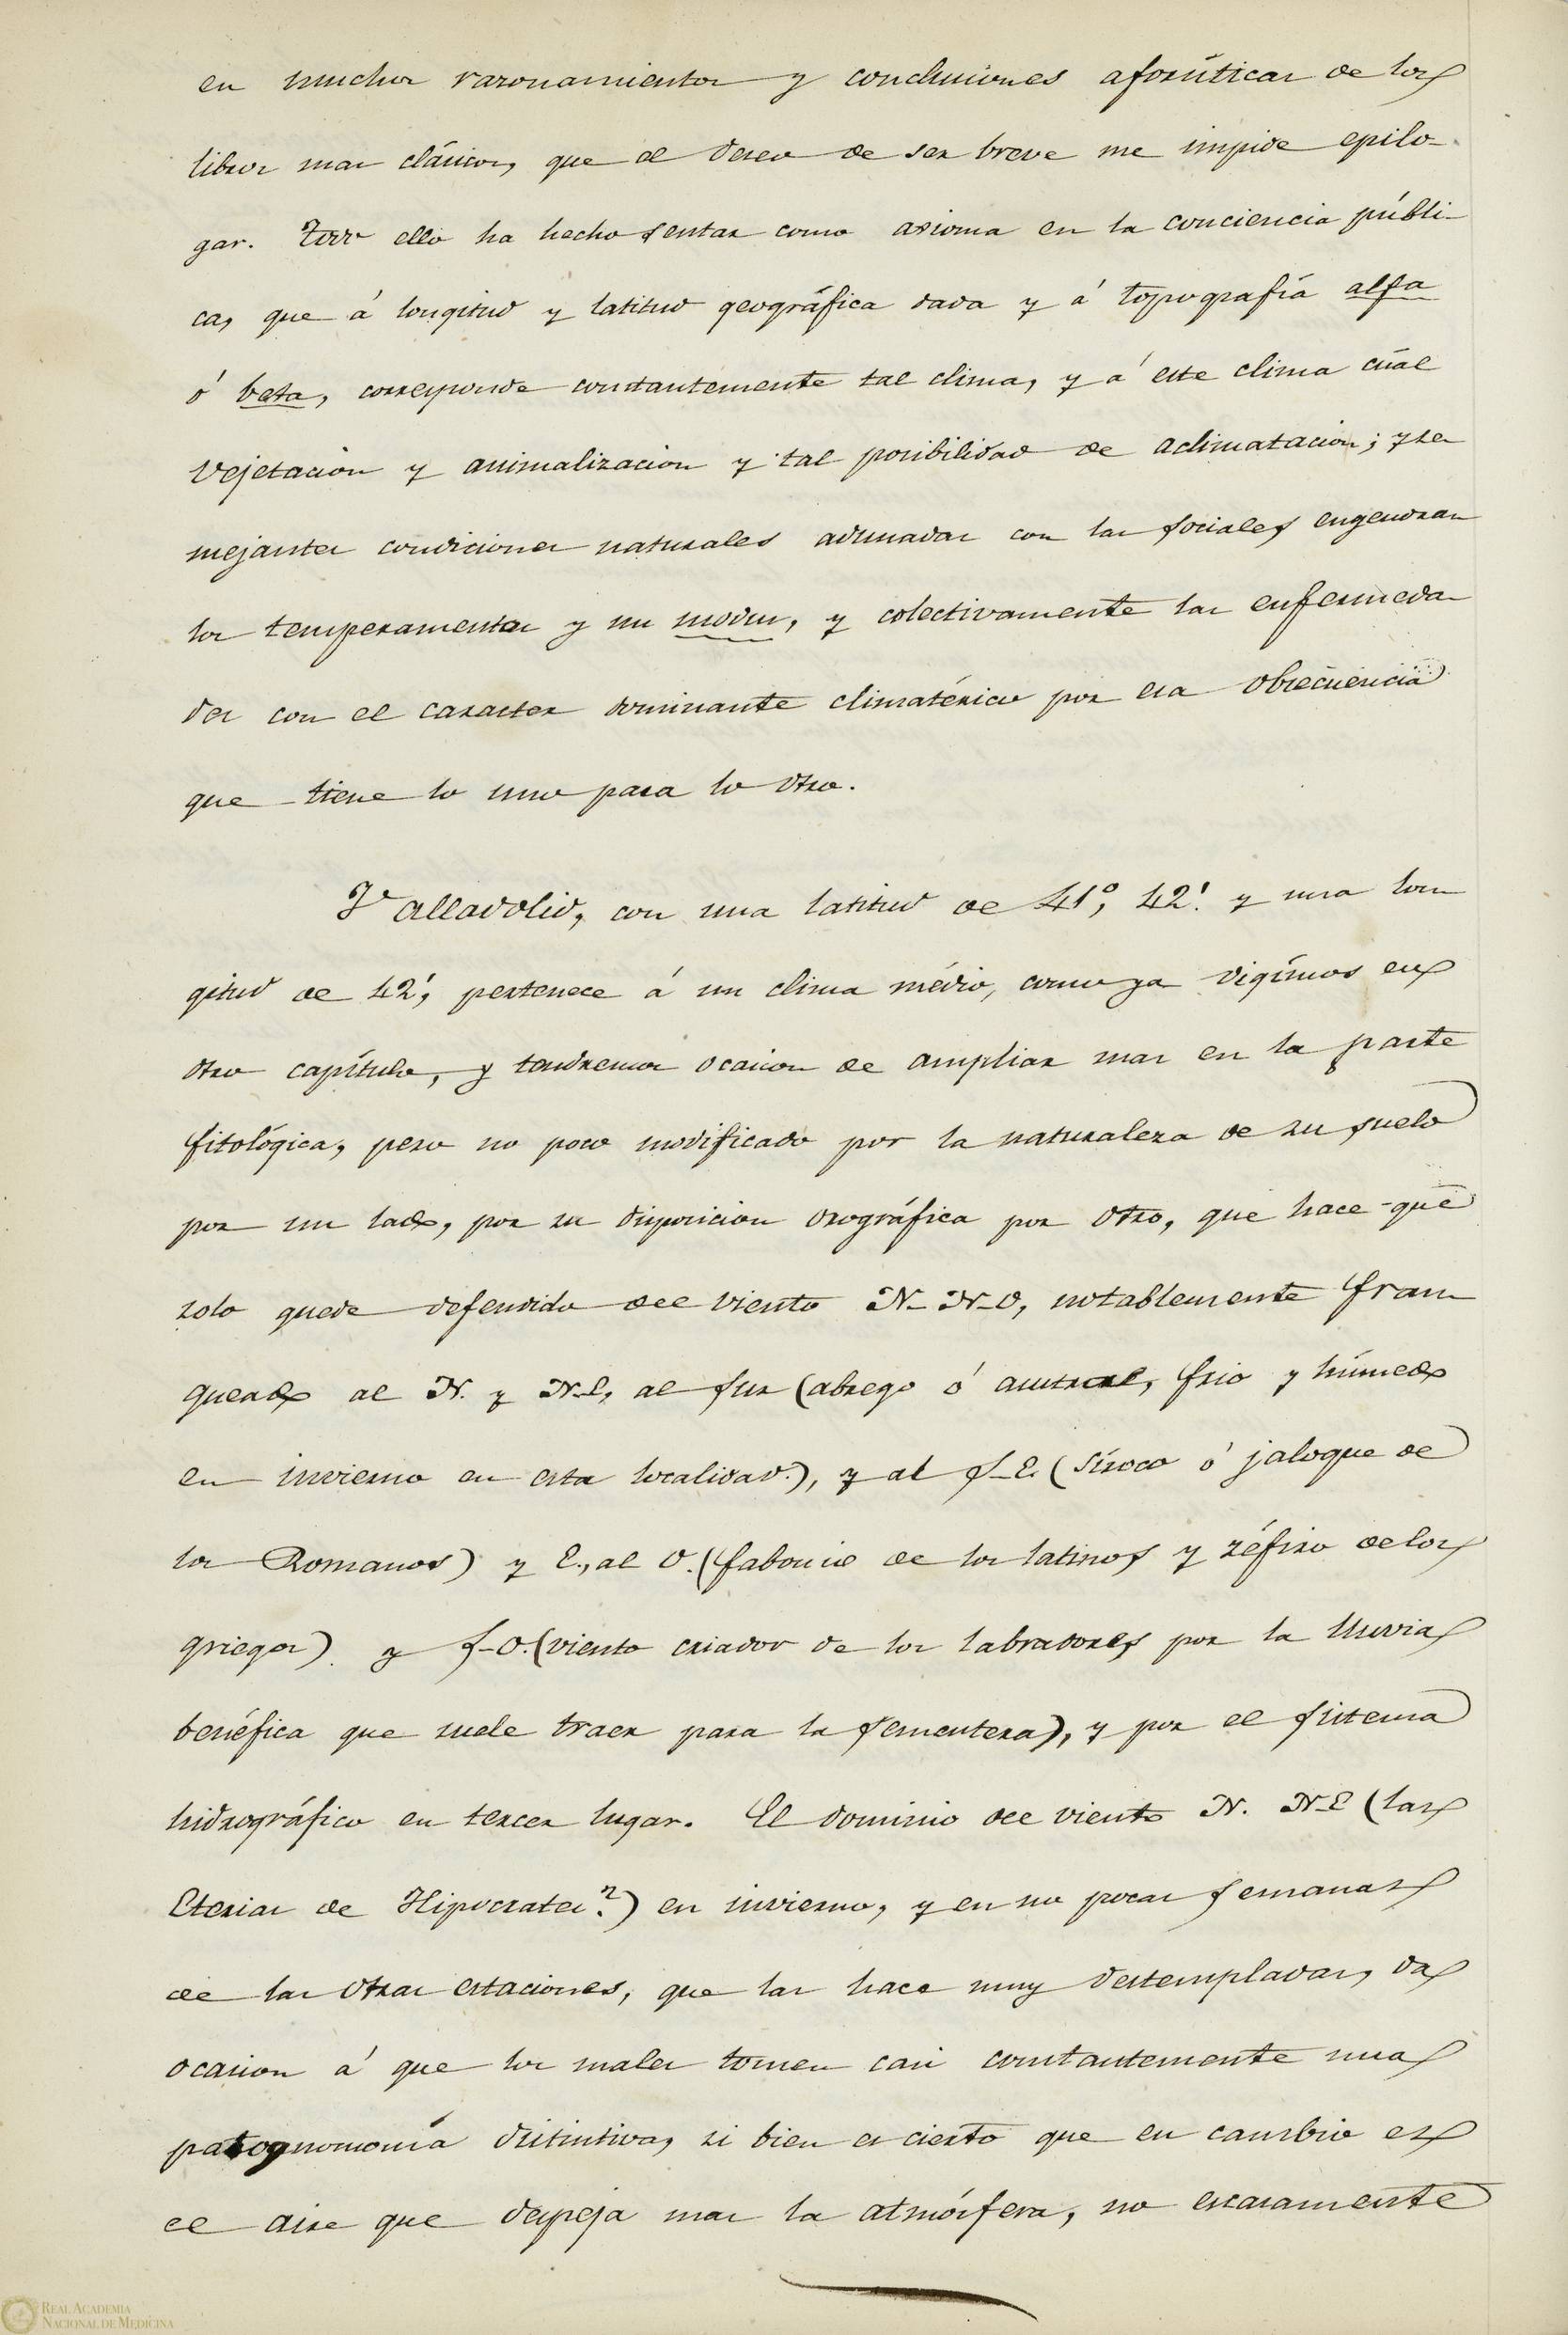 en muchos razonamientos y conclusiones aforísticas de los
libros mas clásicos, que el deseo de ser breve me impide epilo-
gar. Todo ello ha hecho sentar como axioma en la conciencia públi-
ca, que á longitud y latitud geográfica dada y á topografía alfa
ó beta, corresponde constantemente tal clima, y á este clima cúal
vejetacion y animalizacion y tal posibilidad de aclimatacion; y se
mejantes condiciones naturales adunadas con las sociales engendran
los temperamentos y su modus, y colectivamente las enfermeda
des con el caracter dominante climatérico por esa obsecuencia
que tiene lo uno para lo otro.
Valladolid, con una latitud de 41°, 42' y una lon
gitud de 42', pertenece á un clima médio, como ya digímos en
otro capítulo, y tendremos ocasion de ampliar mas en la parte
fitológica, pero no poco modificado por la naturaleza de su suelo
por un lado, por su disposicion orográfica por otro, que hace que
solo quede defendido del viento N-N-O, notablemente fran
queado al N. y N-E, al sur (abrego ó austral, frio y húmedo
en invierno en esta localidad.), y al S-E. (síroco ó jaloque de
los Romanos) y E., al O. (fabonio de los latinos y zéfiro de los
griegos) y S-O. (viento criador de los labradores por la lluvia
benéfica que suele traer para la sementera), y por el sistema
hidrográfico en tercer lugar. El dominio del viento N. N-E (las
Etesias de Hipocrates?) en invierno, y en no pocas semanas
de las otras estaciones, que las hace muy destempladas, da
ocasion á que los males tomen casi constantemente una
patognomonía distintiva, si bien es cierto que en cambio es
el aire que despeja mas la atmósfera, no escasamente
REAL ACADEMIA
NACIONAL DE MEDICINA